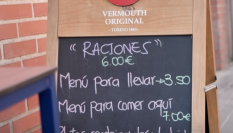 VERMOUTH
ORIGINAL
"RACIONES"
6.00€
Menú para llevar→3.50
Menú para comer aquí
7.00€